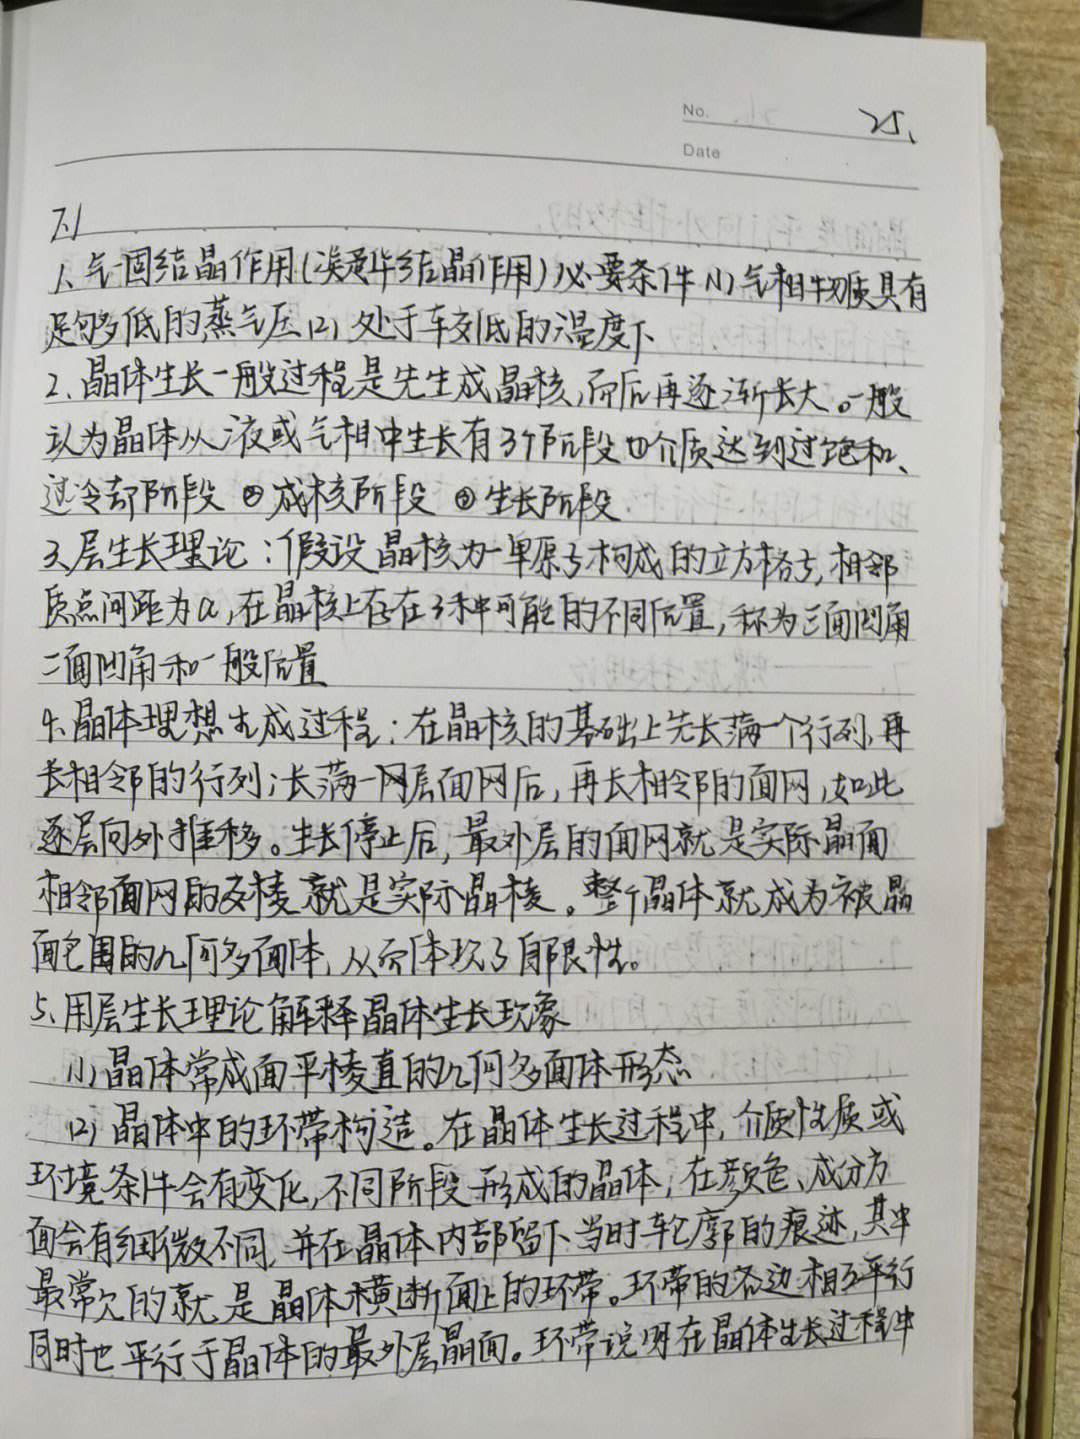 No.
25、
Date
7.1
1、气-固结晶作用(凝华结晶作用)必要条件(1)气相物质具有
足够低的蒸气压(2)处于较低的温度下
2、晶体生长一般过程是先生成晶核,而后再逐渐长大。一般
认为晶体从液或气相中生长有3个阶段①介质达到过饱和、
过冷却阶段 ②成核阶段 ③生长阶段
3、层生长理论:假设晶核为一单原子构成的立方格子,相邻
质点间距为a,在晶核上存在3种可能的不同位置,称为三面凹角
二面凹角和一般位置
4、晶体理想生成过程:在晶核的基础上先长满一个行列,再
长相邻的行列;长满一网层面网后,再长相邻的面网,如此
逐层向外推移。生长停止后,最外层的面网就是实际晶面
相邻面网的交棱就是实际晶棱。整个晶体就成为被晶
面包围的几何多面体,从而体现了自限性。
5、用层生长理论解释晶体生长现象
(1)晶体常成面平棱直的几何多面体形态
(2)晶体中的环带构造。在晶体生长过程中,介质性质或
环境条件会有变化,不同阶段形成的晶体,在颜色、成分方
面会有细微不同,并在晶体内部留下当时轮廓的痕迹,其中
最常见的就是晶体横断面上的环带。环带的各边相互平行
同时也平行于晶体的最外层晶面。环带说明在晶体生长过程中